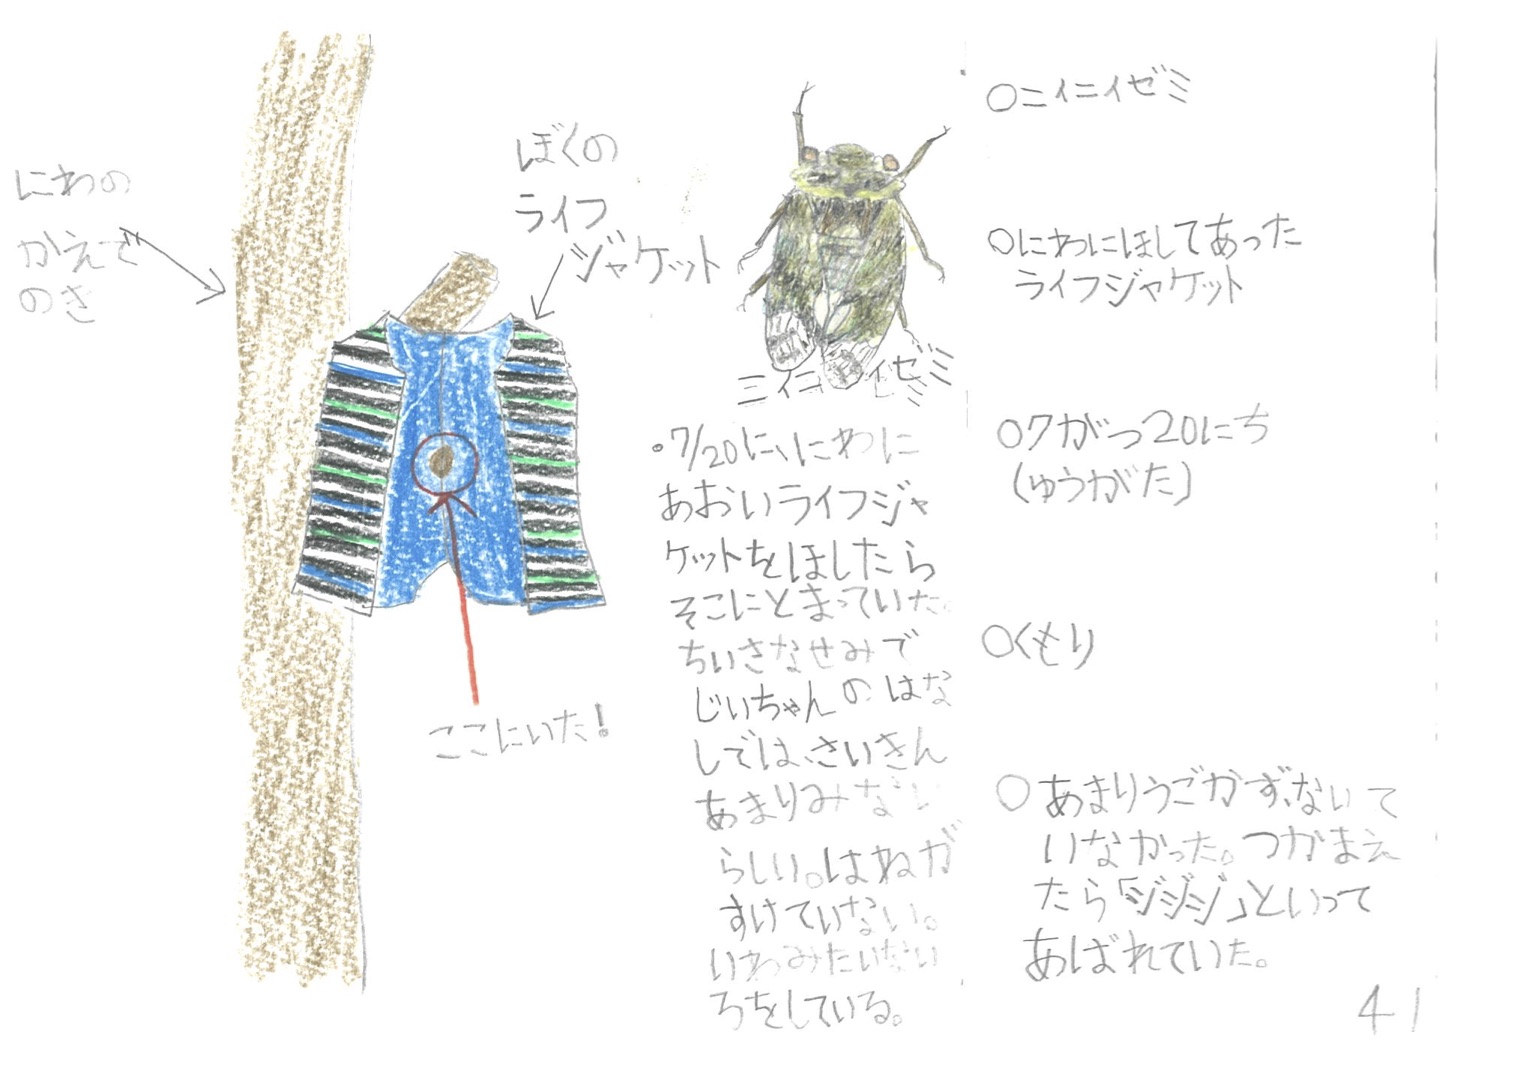 にわの
かえで
のき
ぼくの
ライフ
ジャケット
ここにいた!
ニイニイゼミ
・7/20に、にわに
あおいライフジャ
ケットをほしたら
そこにとまっていた。
ちいさなせみで
じいちゃんのはな
しでは、さいきん
あまりみない
らしい。はねが
すけていない。
いわみたいない
ろをしている。
○ニイニイゼミ
○にわにほしてあった
ライフジャケット
○7がつ20にち
(ゆうがた)
○くもり
○あまりうごかず、ないて
いなかった。つかまえ
たら「ジジジ」といって
あばれていた。
41